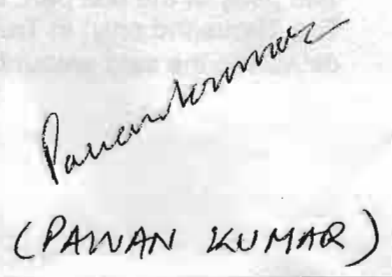 Pawan Kumar
(PAWAN KUMAR)